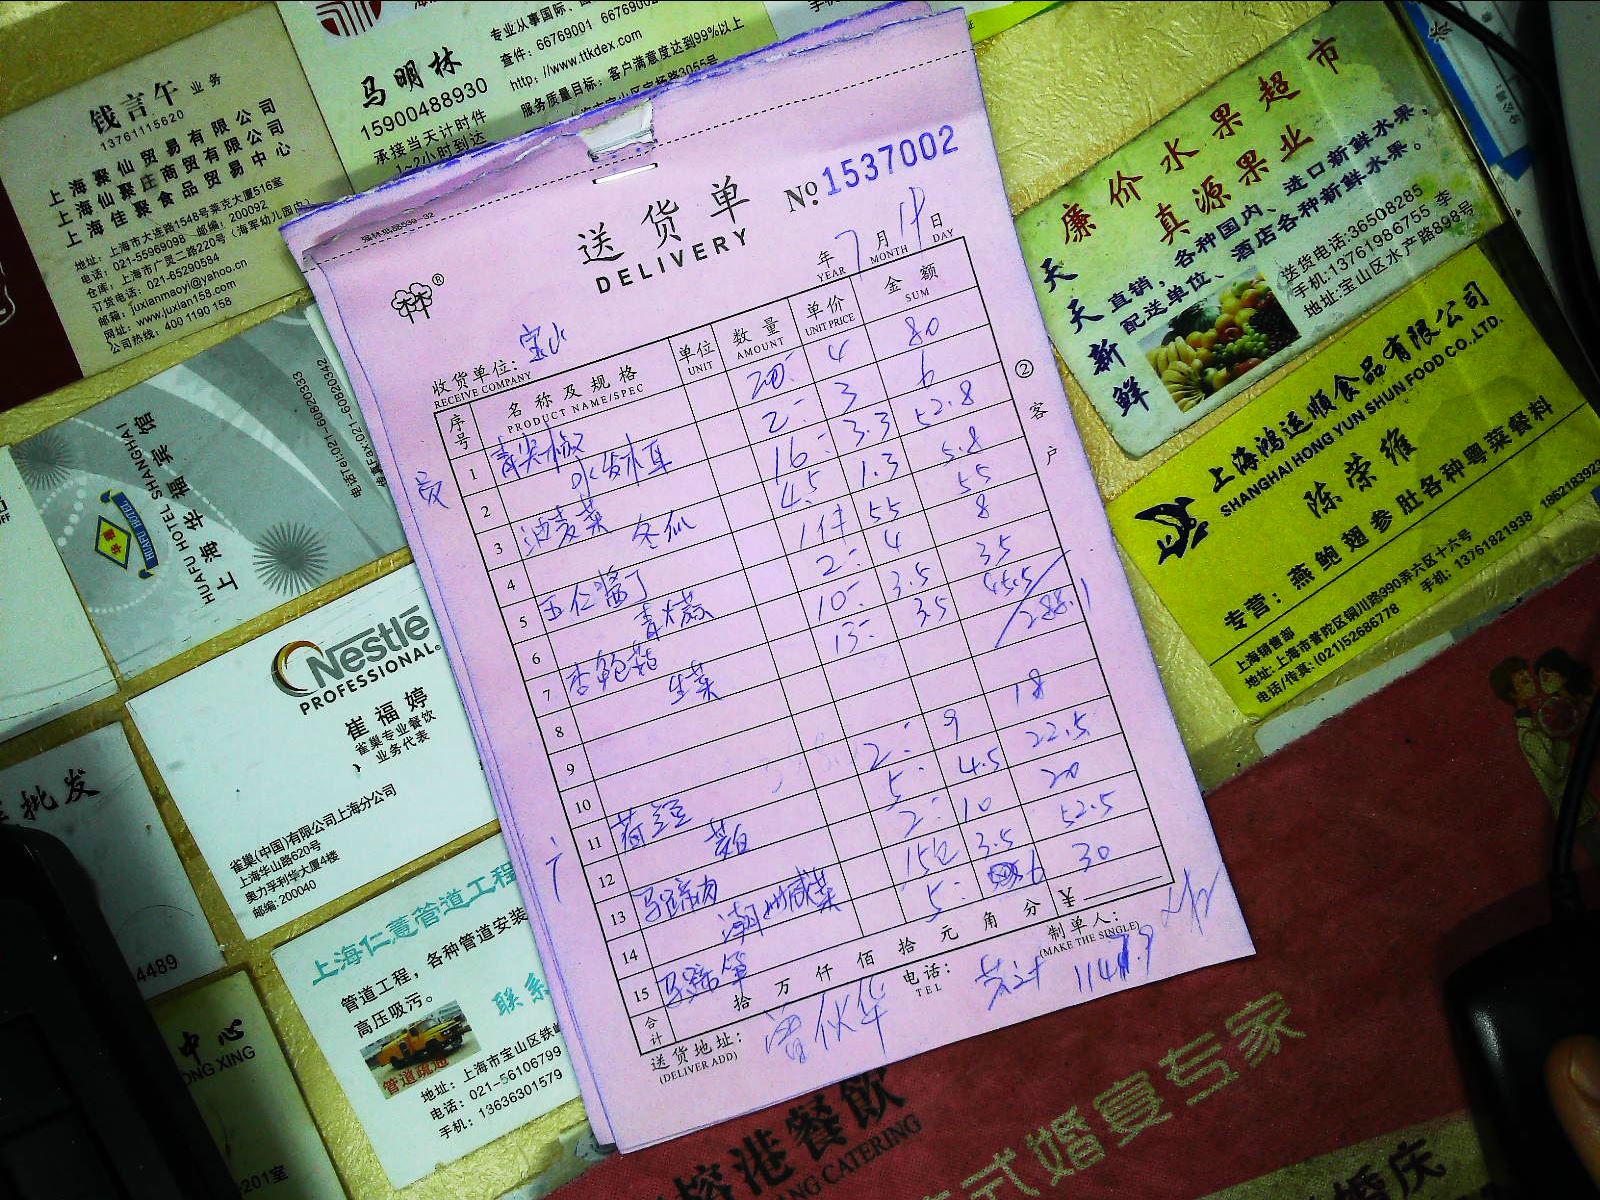 钱言午 业务
13761115620
上海聚仙贸易有限公司
上海仙聚庄商贸有限公司
上海佳聚食品贸易中心
地址：上海市大连路1548号莱克大厦516室
电话：021-55969098 邮编：200092
仓库：上海市广灵二路220号（海军幼儿园内）
订货电话：021-65290584
邮箱：juxianmaoyi@yahoo.cn
网址：www.juxian158.com
公司热线：400 1190 158
专业从事国际、
查件：66769001 6676900
http://www.ttkdex.com
服务质量目标：客户满意度达到99%以上
马明林
15900488930
承接当天计时件
1~2小时到达
送货单
DELIVERY
No. 1537002
年 7 月 日
YEAR MONTH DAY
收货单位： 宝山
RECEIVE COMPANY
序号 名称及规格 单位 数量 单价 金额
PRODUCT NAME/SPEC UNIT AMOUNT UNIT PRICE SUM
1 青尖椒 20 4 80
2 水发木耳 2 3 6
3 油麦菜 16 3.3 52.8
4 冬瓜 4.5 1.3 5.8
5 五仁酱丁 1件 55 55
6 2 4 8
7 杏鲍菇 10 3.5 35
8 生菜 13 3.5 45.5
288.1
9
10
11 荷兰豆 2 9 18
12 5 4.5 22.5
13 马蹄肉 2 10 20
14 潮州咸菜 15包 3.5 52.5
15 马蹄笋 5 6 30
合计 拾万仟佰拾元角分 ¥
② 客户
送货地址：
(DELIVER ADD)
电话：
TEL
制单人：
(MAKE THE SINGLE)
廉价水果超市
真源果业
天天新鲜
直销，各种国内、进口新鲜水果，
配送单位、酒店各种新鲜水果。
送货电话:36508285
手机:13761986755 李
地址:宝山区水产路898号
上海鸿运顺食品有限公司
SHANGHAI HONG YUN SHUN FOOD CO.,LTD.
陈荣维
专营：燕鲍翅参肚各种粤菜餐料
上海销售部
地址：上海市普陀区铜川路990弄六区十六号
电话/传真：(021)52686778 手机：13761821938 1862183923
HUAFU HOTEL SHANGHAI
上海华福宾馆
电话Tel:021-60820333
传真Fax:021-60820342
HUAFU HOTEL
Nestlé
PROFESSIONAL
崔福婷
雀巢专业餐饮
业务代表
雀巢(中国)有限公司上海分公司
上海华山路620号
奥力孚利华大厦4楼
邮编：200040
批发
4489
中心
ONG XING
201室
上海仁薏管道工程
管道工程，各种管道安装
高压吸污。
联系
管道疏通
地址：上海市宝山区铁
电话：021-56106799
手机：13636301579
港餐飲
CATERING
式婚宴专家
婚庆